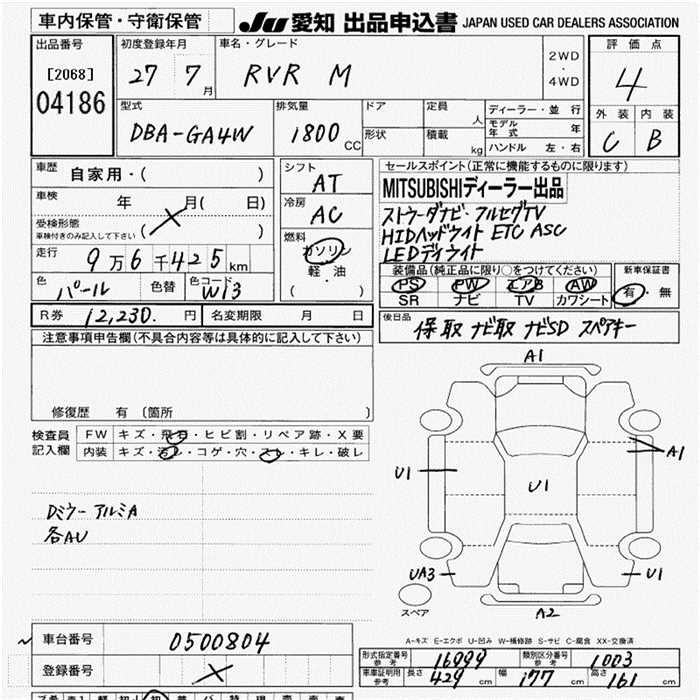 車内保管・守衛保管
JU 愛知 出品申込書 JAPAN USED CAR DEALERS ASSOCIATION
出品番号
[2068]
04186
初度登録年月
27 7 月
車名・グレード
RVR M
2WD
・
4WD
評価点
4
外装 内装
C B
型式
DBA-GA4W
排気量
1800 CC
ドア
形状
定員 人
積載 kg
ディーラー・並行
モデル年式 年
ハンドル 左・右
車歴
自家用・( )
車検 年 月( 日)
受検形態
車検付きのみ記入して下さい ( )
走行 9万6千425km
色 パール
色替
色コード W13
シフト
AT
冷房
AC
燃料
ガソリン
軽・油
( )
セールスポイント(正常に機能するものに限ります)
MITSUBISHIディーラー出品
ストラーダナビ・フルセグTV
HIDヘッドライト ETC ASC
LEDデイライト
装備品(純正品に限り○をつけてください)
PS PW エアB AW
SR ナビ TV カワシート
新車保証書
有・無
R券 12,230. 円
名変期限 月 日
後日品 保 取 ナビ取 ナビSD スペアキー
注意事項申告欄(不具合内容等は具体的に記入して下さい)
修復歴 有 〔箇所 〕
検査員
記入欄
FW キズ・飛石・ヒビ割・リペア跡・X要
内装 キズ・汚レ・コゲ・穴・スレ・キレ・破レ
Dミラー アルミA
各AU
A1
A1
U1
U1
UA3
U1
A2
スペア
A-キズ E-エクボ U-凹み W-補修跡 S-サビ C-腐食 XX-交換済
車台番号 0500804
登録番号
形式指定番号
参考
16999
類別区分番号
参考
1003
車庫証明用
参考
長さ 429 cm 幅 177 cm 高さ 161 cm